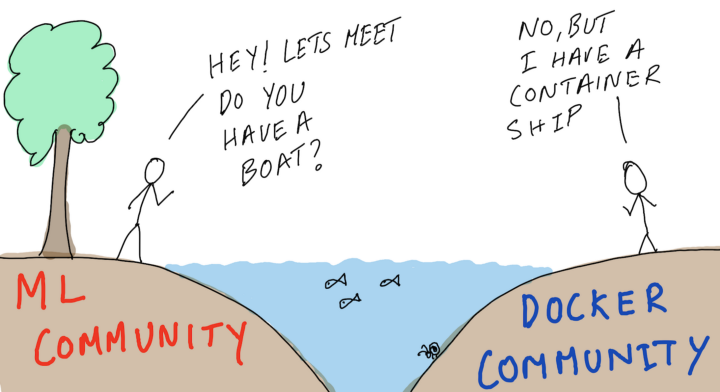 HEY! LETS MEET
DO YOU
HAVE A
BOAT?
NO, BUT
I HAVE A
CONTAINER
SHIP
ML
COMMUNITY
DOCKER
COMMUNITY